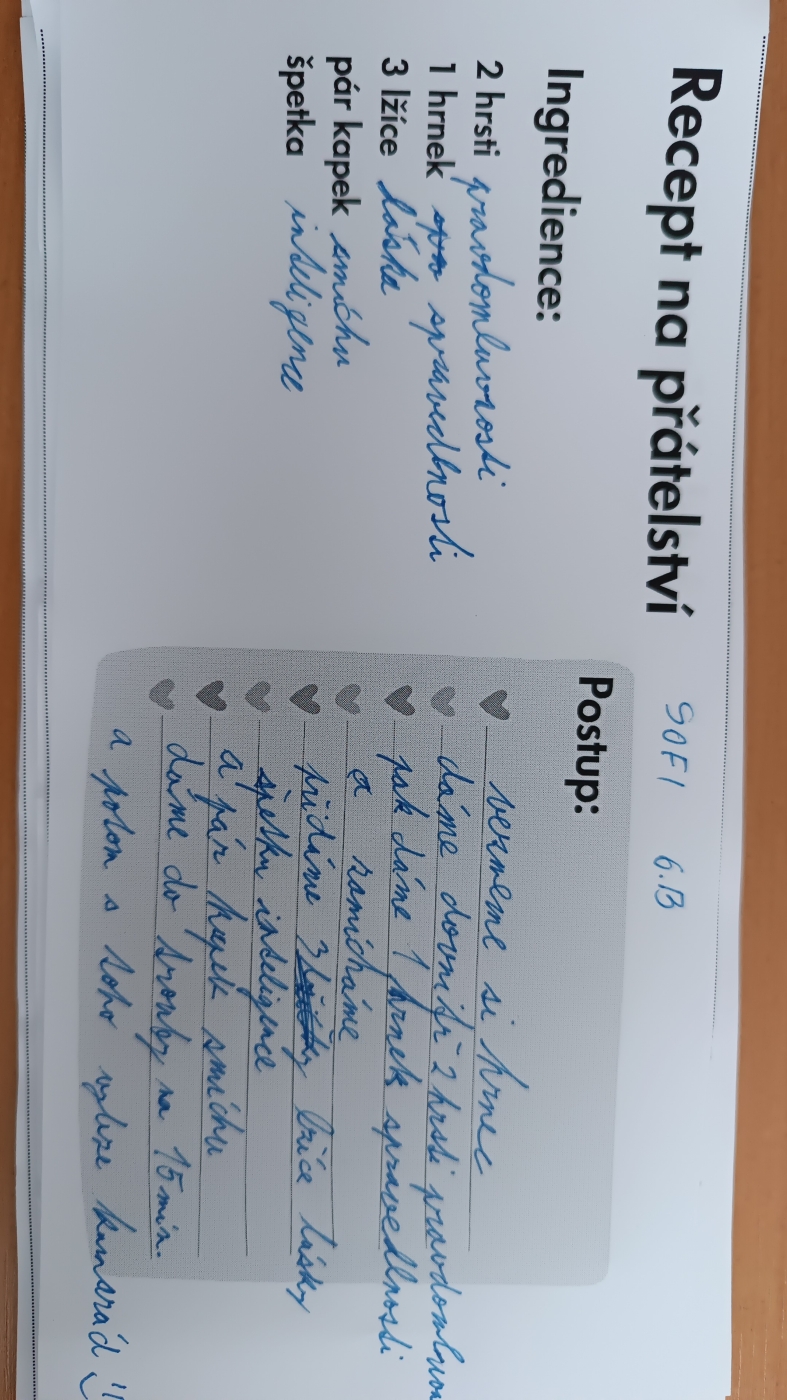 Recept na přátelství SOFI 6.B
Ingredience:
2 hrsti pravdomluvnosti
1 hrnek spravedlnosti
3 lžíce láska
pár kapek smíchu
špetka inteligence
Postup:
vezmeme si hrnec
dáme dovnitř 2 hrsti pravdomluv
pak dáme 1 hrnek spravedlnosti
a zamícháme
přidáme 3 lžíce lásky
špetku inteligence
a pár kapek smíchu
dáme do trouby na 15 min.
a potom s toho vyleze kamarád !!